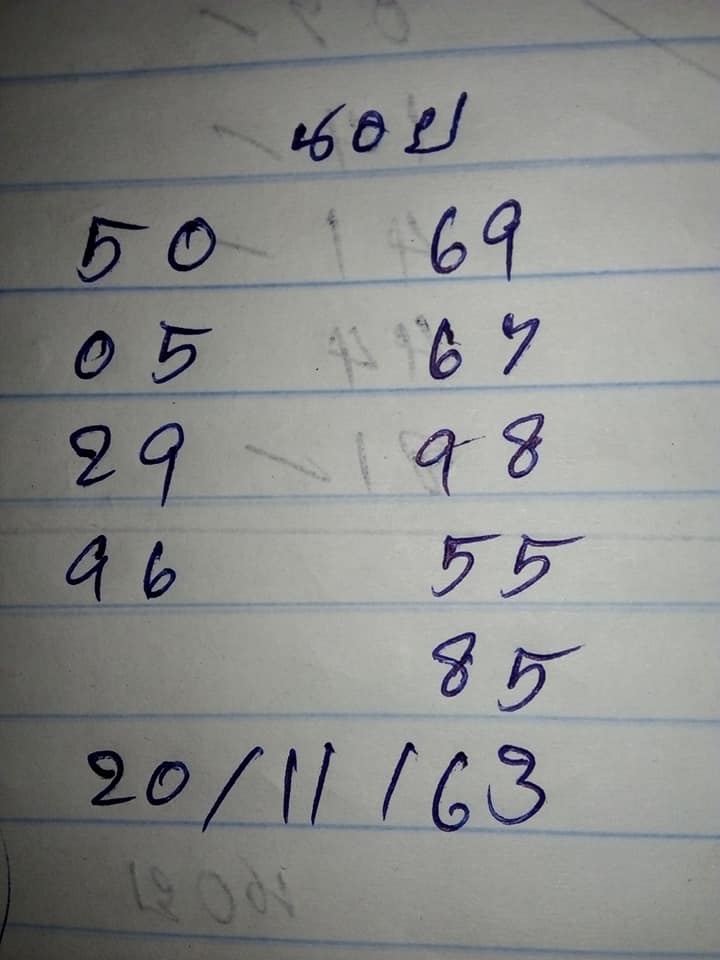 ฮอย
50 69
05 67
29 98
96 55
85
20/11/63